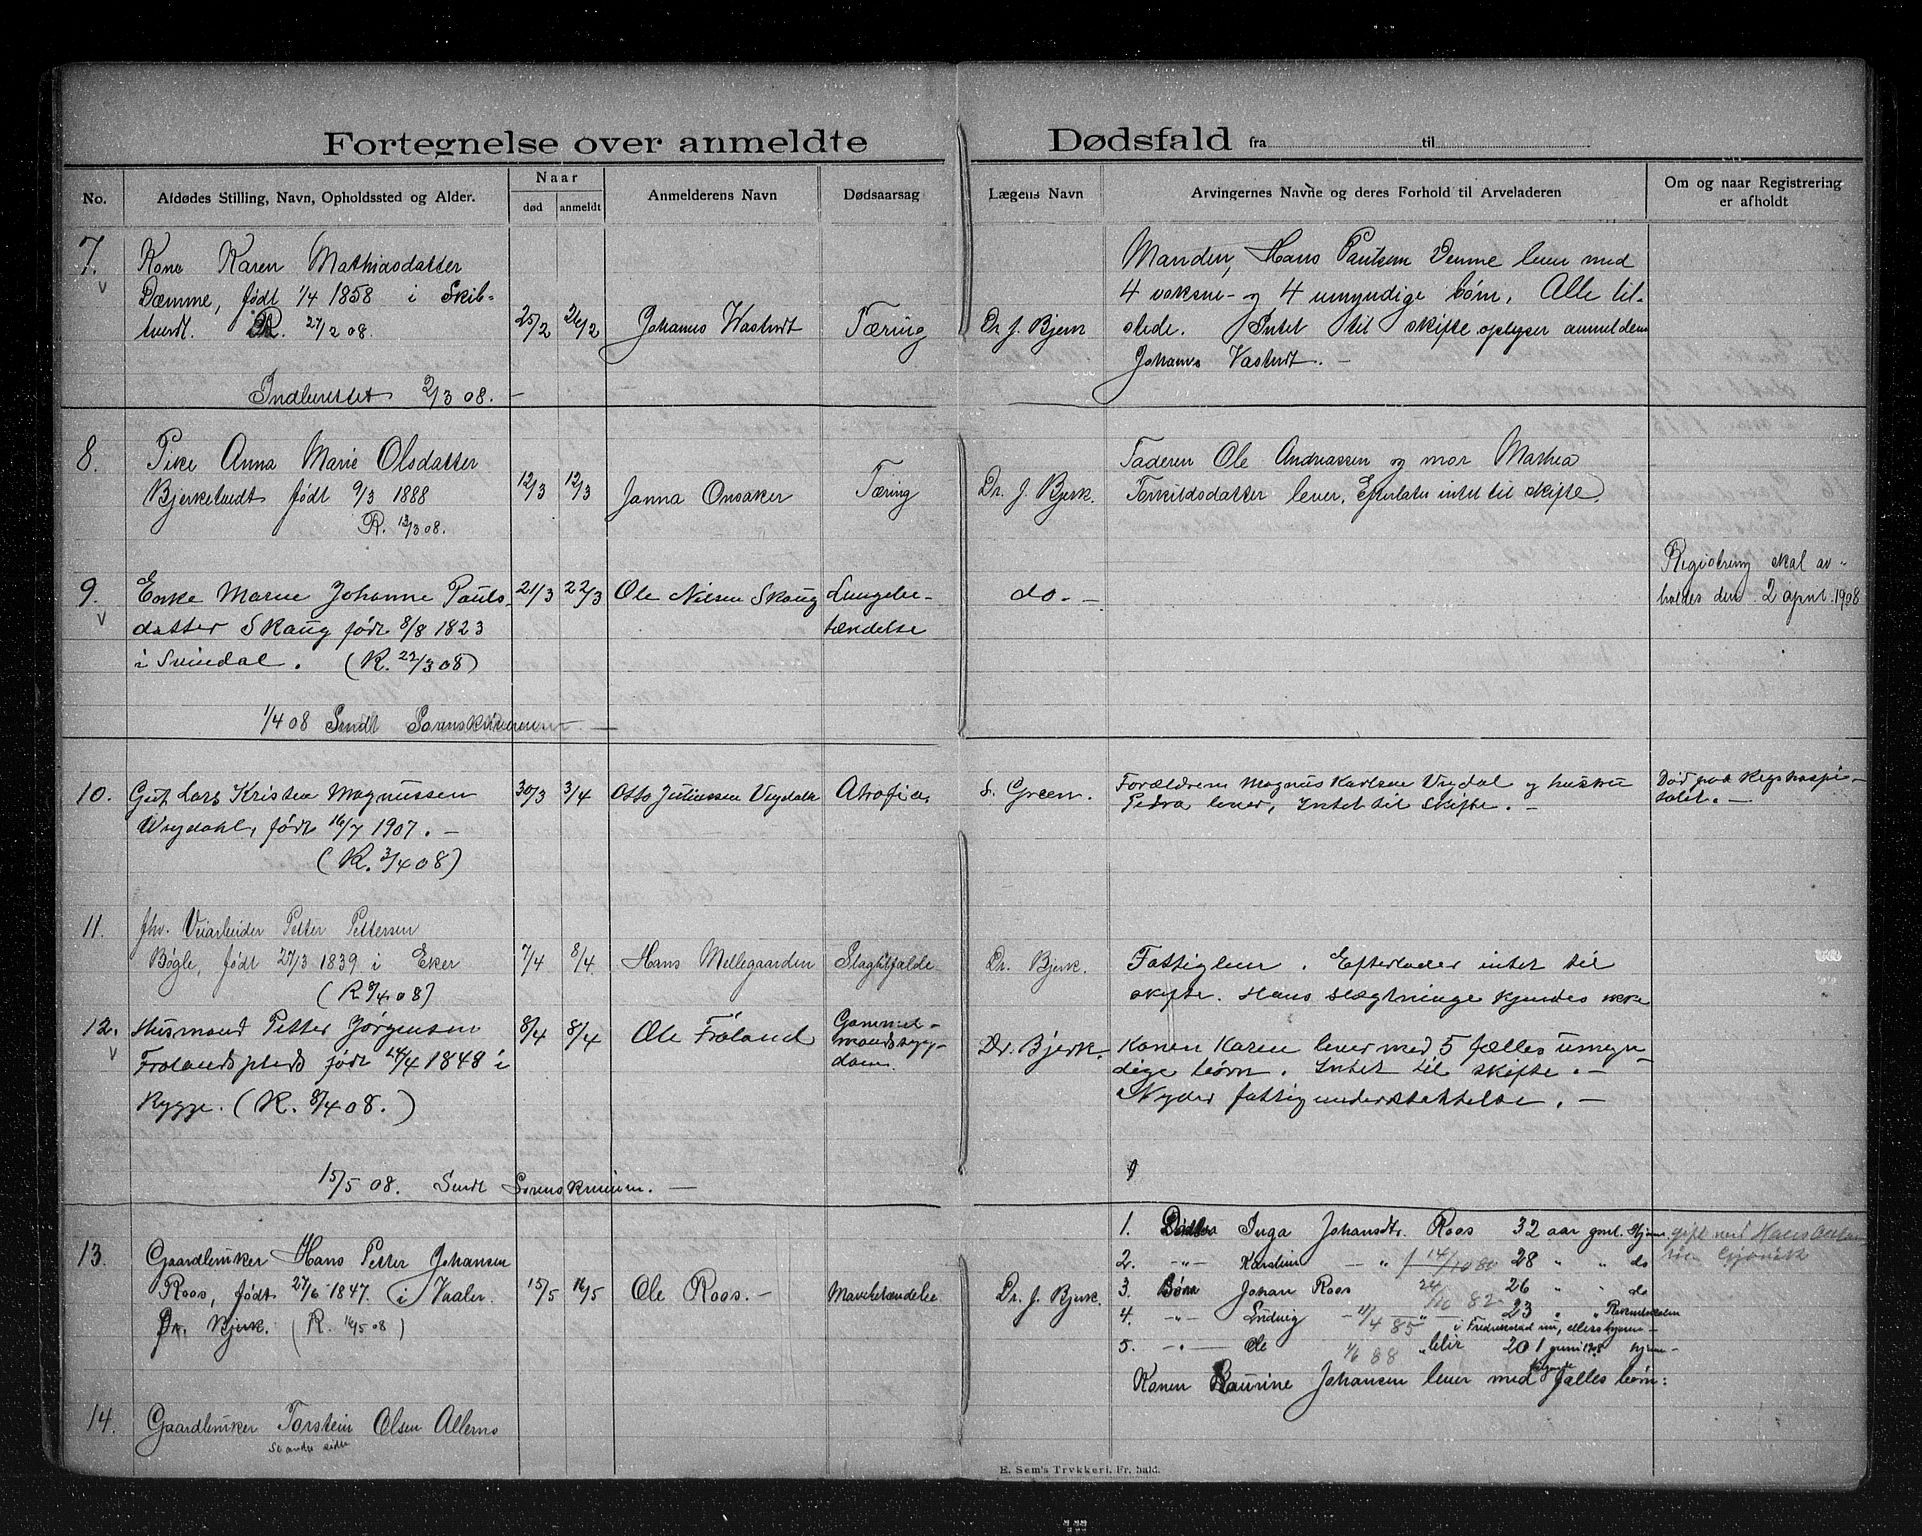 Fortegnelse over anmeldte Dødsfald fra til
No.
Afdødes Stilling, Navn, Opholdssted og Alder.
Naar
død anmeldt
Anmelderens Navn
Dødsaarsag
Lægens Navn
Arvingernes Navne og deres Forhold til Arveladeren
Om og naar Registrering
er afholdt
7.
Kone Karen Mathiasdatter
Dæmme, født 1/4 1858 i Skib-
tvedt. R. 27/2 08.
25/2 26/2
Johannes Vastvedt
Tæring
Dr J. Bjerk
Manden, Hans Paulsen Demme lever med
4 voksne- og 4 umyndige børn. Alle til-
stede. Intet til skifte oplyser anmelderen
Johannes Vastvedt. –
Indberettet 2/3 08. –
8.
Pike Anna Marie Olsdatter
Bjerketvedt født 9/3 1888
R. 13/3 08.
12/3 12/3
Janna Onsaker
Tæring
Dr. J. Bjerk.
Faderen Ole Andreassen og mor Mathea
Torkildsdatter lever. Efterlater intet til skifte.
9.
Enke Maren Johanne Pauls-
datter Skaug født 8/8 1823
i Svindal. (R. 22/3 08)
21/3 22/3
Ole Nilsen Skaug
Lungebe-
tændelse
do. –
Registrering skal av-
holdes den 2 april 1908
1/4 08 Sendt Sorenskriveren –
10.
Gut Lars Kristen Magnussen
Vugdahl, født 16/7 1907. –
(R. 3/4 08)
30/3 3/4
Otto Juliussen
Atrofia
S. Green.
Forældrene Magnus Karlsen og hustru
Petra lever, Intet til skifte. –
Død paa Rigshospi-
talet. –
11.
fhv. Veiarbeider Petter Pettersen
Bøgle, født 27/3 1839 i Eker
(R 8/4 08)
7/4 8/4.
Hans Mellegaarden
Slagtilfælde
Dr. Bjerk.
Fattiglem. Efterlader intet til
skifte. Hans slægtninge kjendes ikke
12.
Husmand Petter Jørgensen
Frolandsplads født 24/4 1848 i
Rygge. (R. 8/4 08.)
8/4 8/4
Ole Froland
Gammel-
mandssyg-
dom.
Dr. Bjerk.
Konen Karen lever med 5 fælles umyn-
dige børn. Intet til skifte. –
Nyder fattigunderstøttelse. –
15/5 08. Sendt Sorenskriveren. –
13.
Gaardbruker Hans Petter Johansen
Roos, født 27/6 1847. i Vaaler
Dr. Bjerk. (R. 16/5 08)
15/5 16/5
Ole Roos. –
Mavebetændelse
Dr. J. Bjerk.
1. Inga Johansdtr. Roos 32 aar gml. Hjem
gift med Hans
Gjøvik
2. –"– Karstein – " 14/10 80 28 " " do
3. Børn Johan Roos 26 " do
4. –"– Ludvig – 11/4 85 23 " "
i Fredrikstad nu, ellers hjemme –
5. –"– Ole 1/6 88 " blir 20 1 juni 1908 hjem –
Konen Laurine Johansen lever med følgende fælles børn:
14.
Gaardbruker Torstein Olsen Allerno
Se andre side
E. Sem's Trykkeri, Fr.hald.